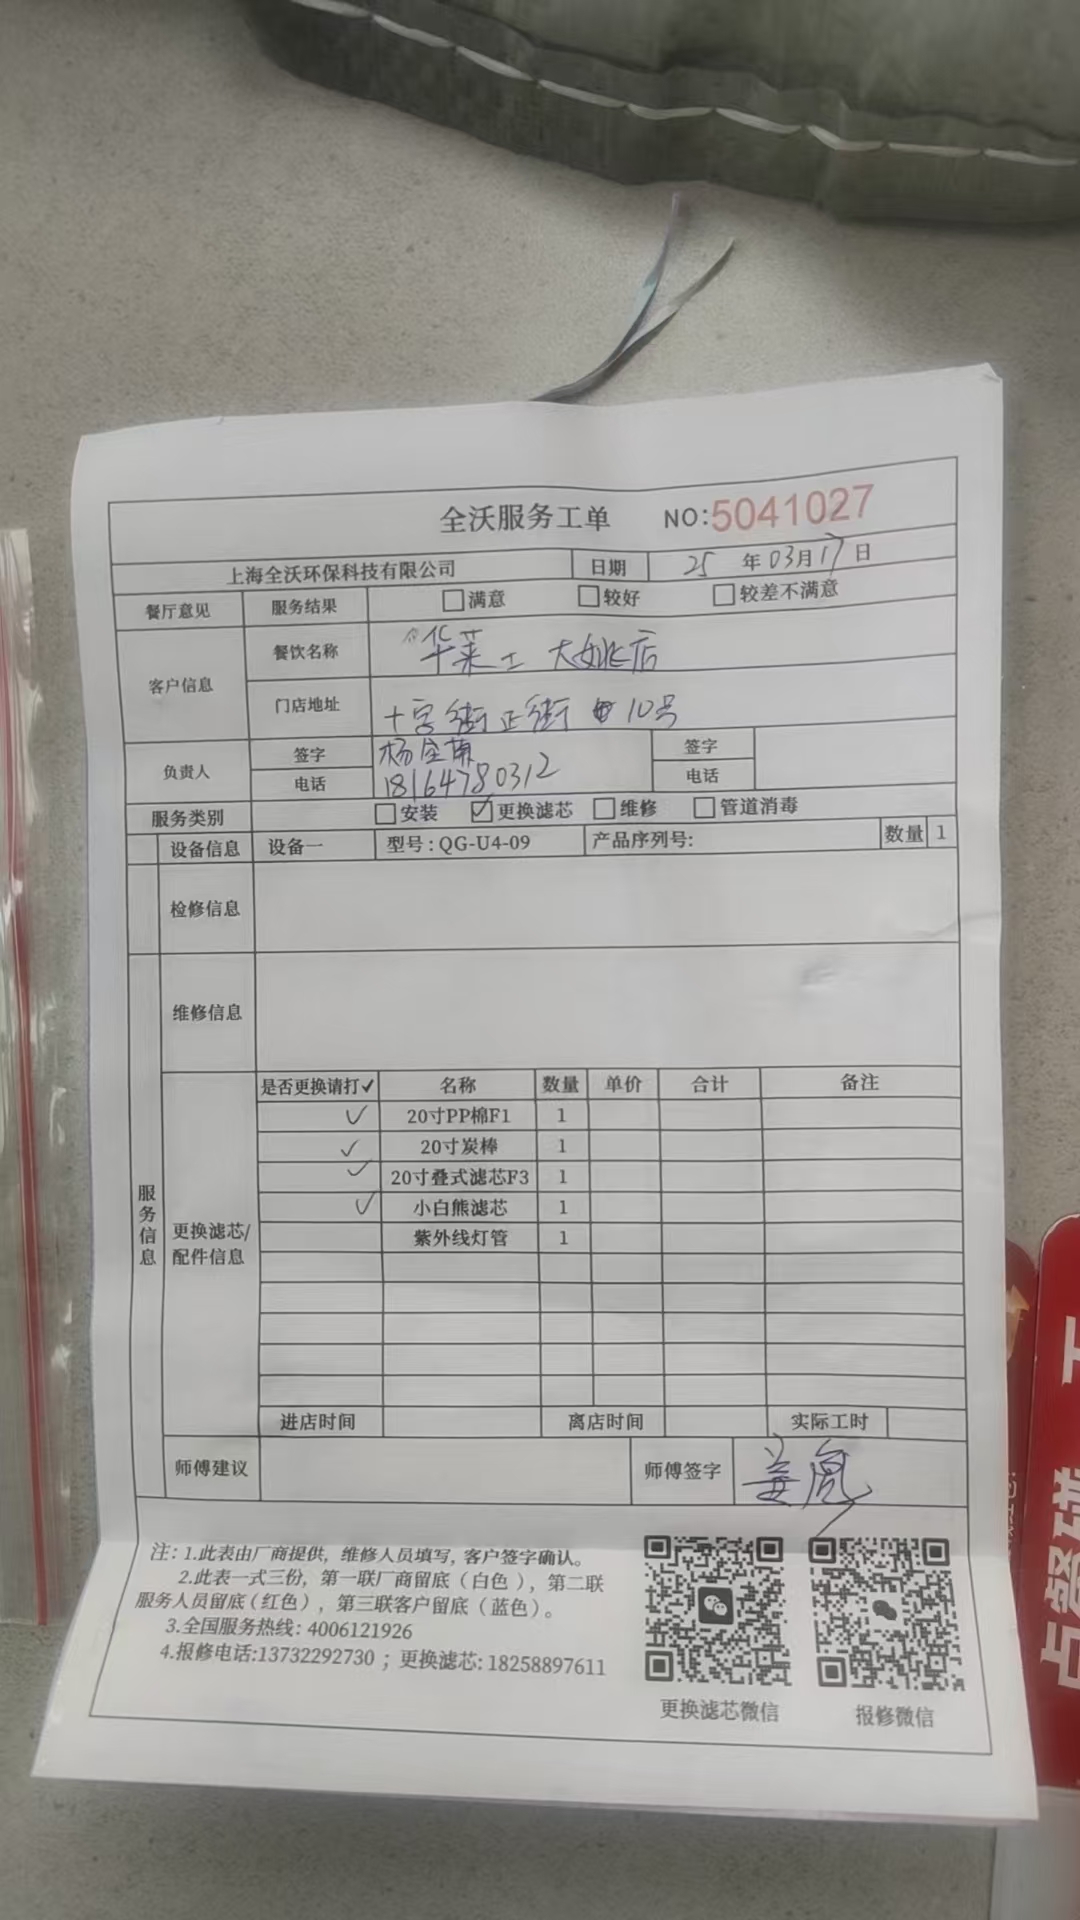 全沃服务工单 NO:5041027
上海全沃环保科技有限公司 日期 25年03月17日
餐厅意见 服务结果 满意 较好 较差不满意
客户信息 餐饮名称 华莱士 大姚北店
门店地址 十字街正街10号
负责人 签字 杨金 签字
电话 18164780312 电话
服务类别 安装 ✓更换滤芯 维修 管道消毒
设备信息 设备一 型号:QG-U4-09 产品序列号: 数量 1
检修信息
维修信息
服务信息
更换滤芯/配件信息
是否更换请打✓ 名称 数量 单价 合计 备注
✓ 20寸PP棉F1 1
✓ 20寸炭棒 1
✓ 20寸叠式滤芯F3 1
✓ 小白熊滤芯 1
紫外线灯管 1
进店时间 离店时间 实际工时
师傅建议 师傅签字 姜
注:1.此表由厂商提供，维修人员填写,客户签字确认。
2.此表一式三份，第一联厂商留底（白色），第二联
服务人员留底（红色），第三联客户留底（蓝色）。
3.全国服务热线：4006121926
4.报修电话:13732292730；更换滤芯:18258897611
更换滤芯微信 报修微信